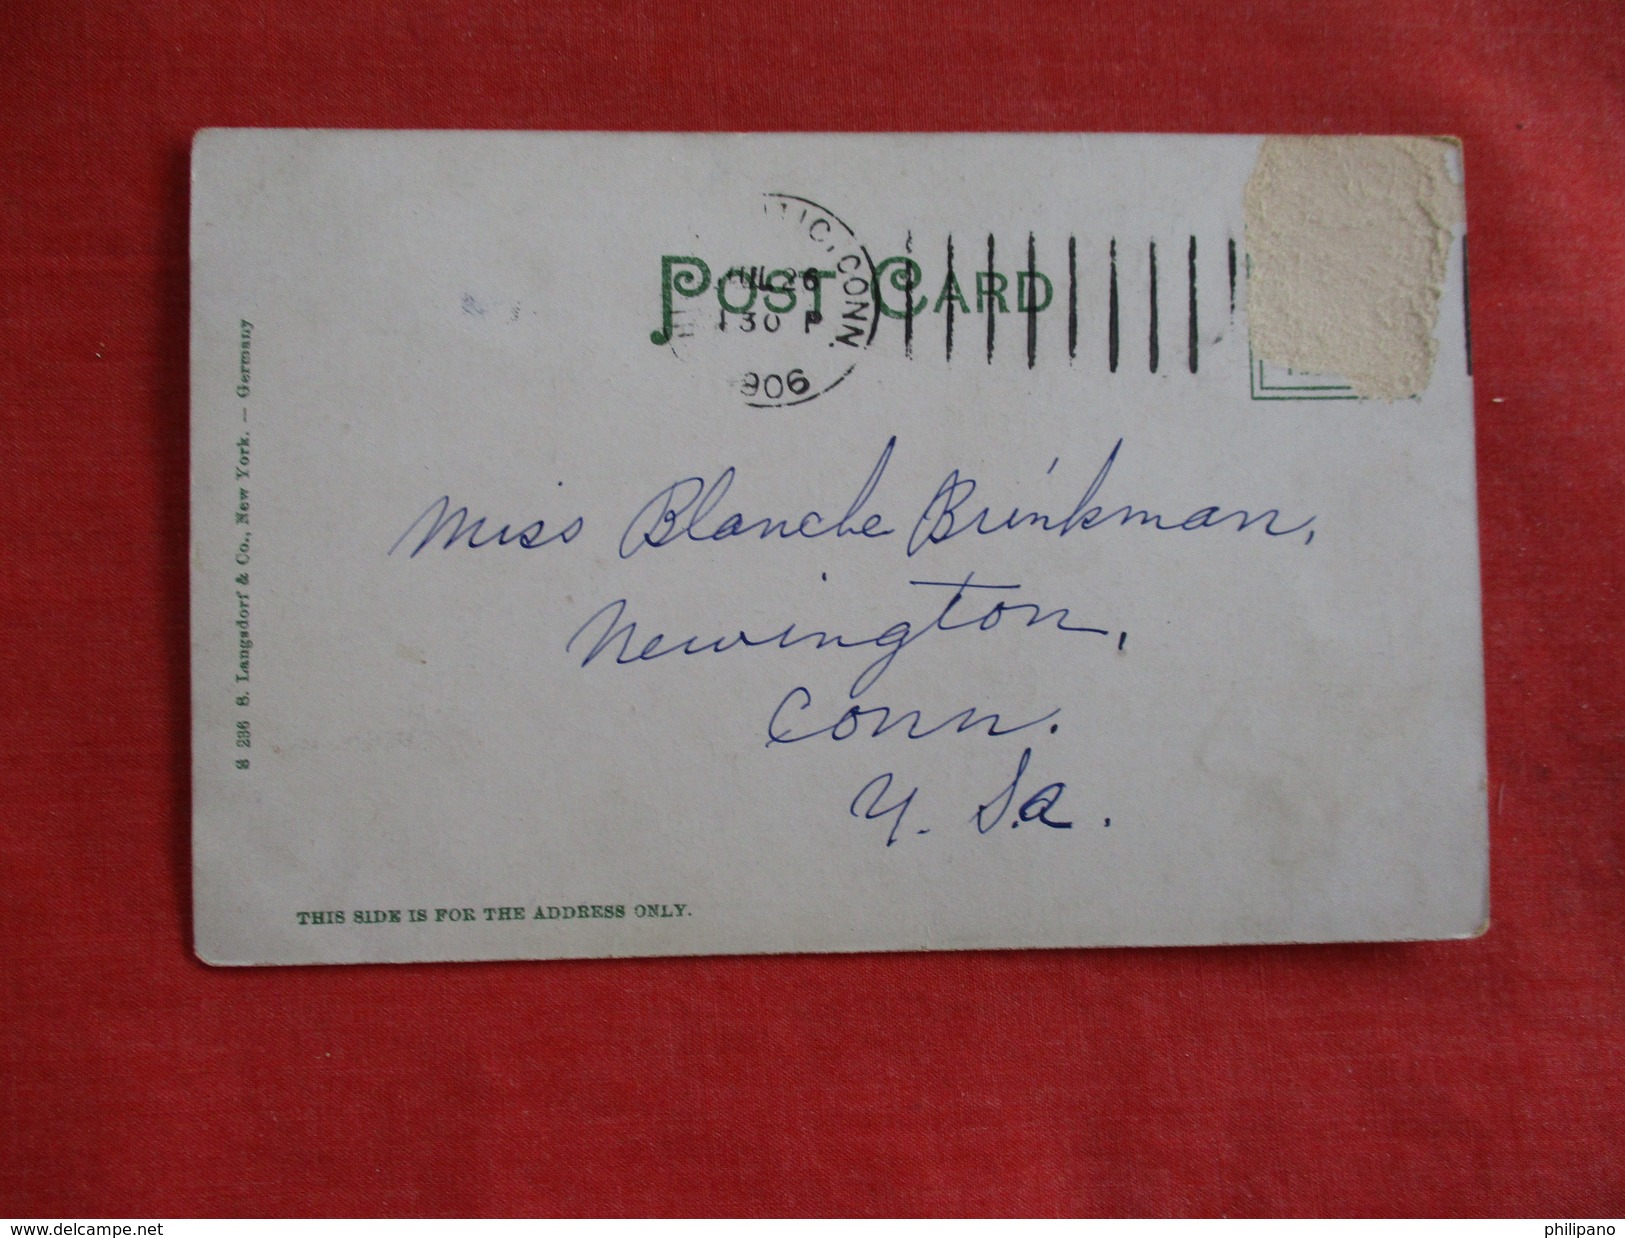 POST CARD
CONN.
JUL 26
30 P
906
Miss Blanche Brinkman,
Newington,
Conn.
U. S.a.
THIS SIDE IS FOR THE ADDRESS ONLY.
S 236 S. Langsdorf & Co., New York. — Germany
www.delcampe.net
philipano